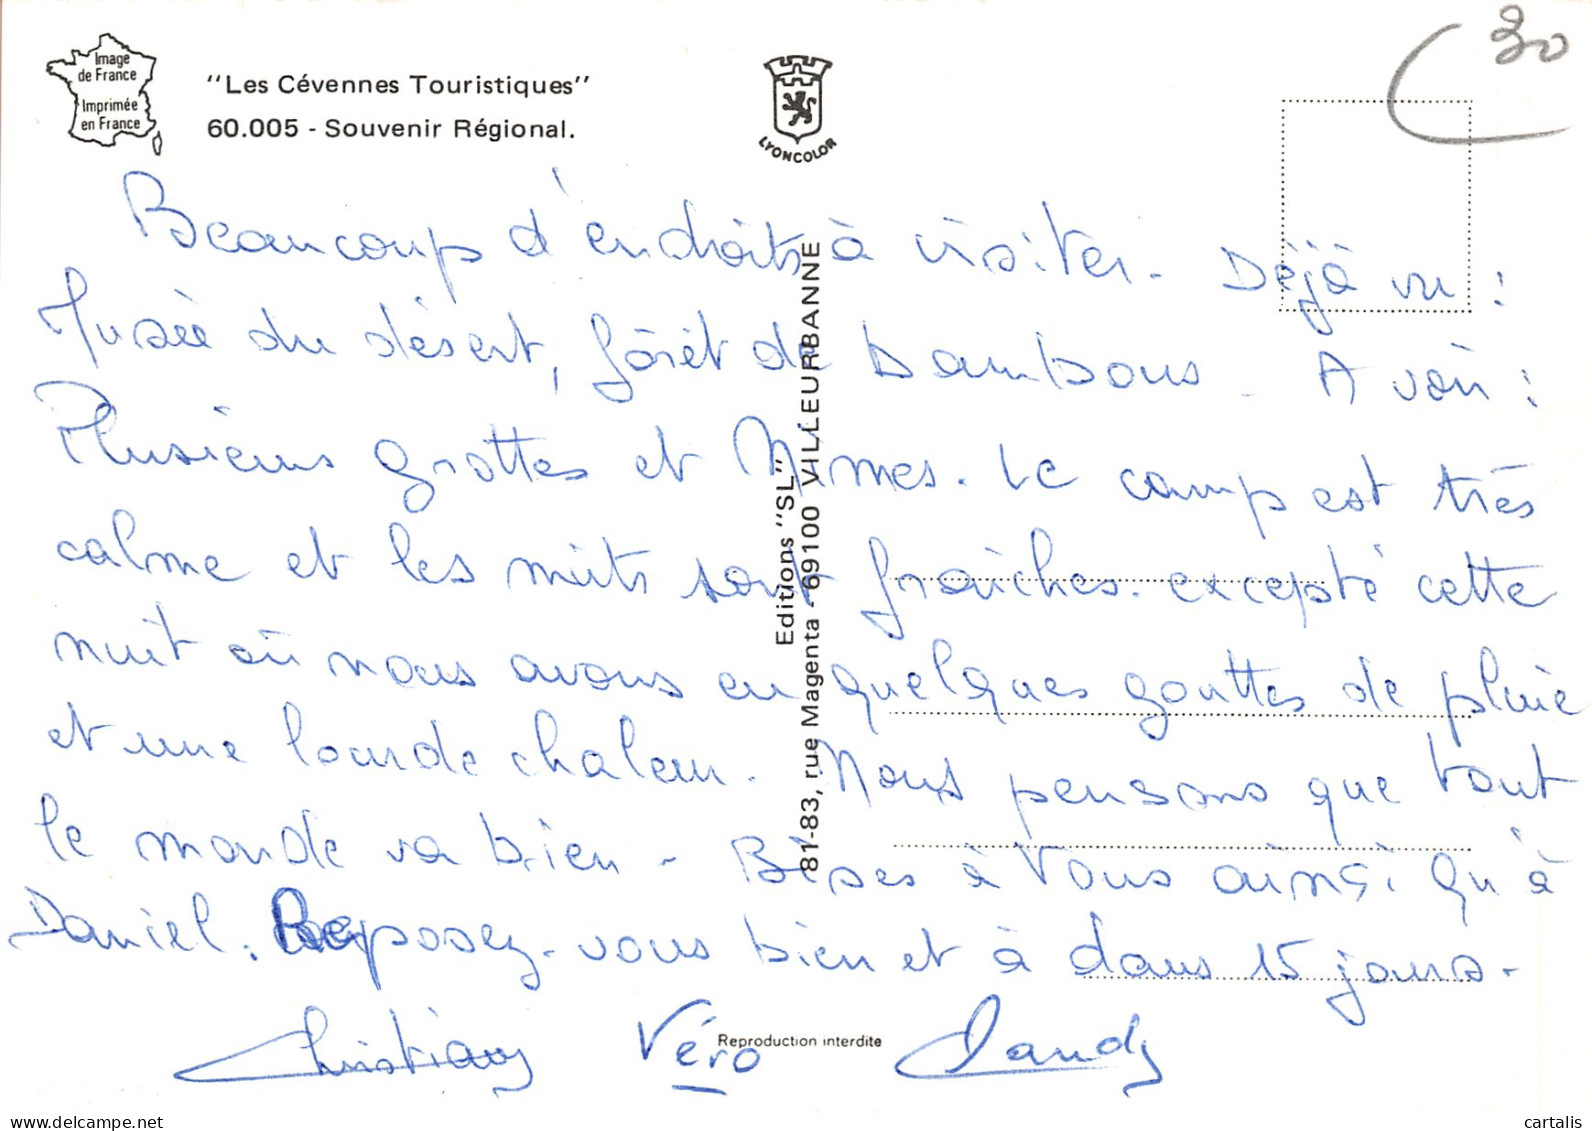 Image
de France
Imprimée
en France
"Les Cévennes Touristiques"
60.005 - Souvenir Régional.
LYONCOLOR
30
Beaucoup d'endroits à visiter. Déjà vu :
Musée du désert, fôrêt de bambous. A voir :
Plusieurs grottes et Nîmes. Le camp est très
calme et les nuits sont fraîches. excepté cette
nuit où nous avons eu quelques gouttes de pluie
et une lourde chaleur. Nous pensons que tout
le monde va bien - Bises à vous ainsi qu'à
Daniel. Reposez-vous bien et à dans 15 jours -
Christiane Véro
Editions "SL"
81-83, rue Magenta - 69100 VILLEURBANNE
Reproduction interdite
delcampe.net
cartalis